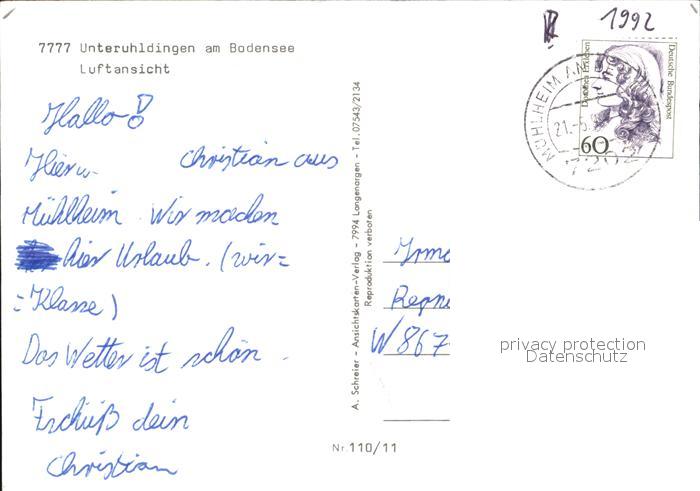 1992
7777 Unteruhldingen am Bodensee
Luftansicht
Deutsche Bundespost
60
MÜHLHEIM AN
21.-5.
7202
Hallo!
Hier Christian aus
Mühlheim. Wir machen
hier Urlaub. (wir=
=Klasse)
Das Wetter ist schön.
Tschüß dein
Christian
A. Schreier - Ansichtskarten-Verlag - 7994 Langenargen - Tel. 07543/2134
Reproduktion verboten
Irme
W 867
privacy protection
Datenschutz
Nr. 110/11